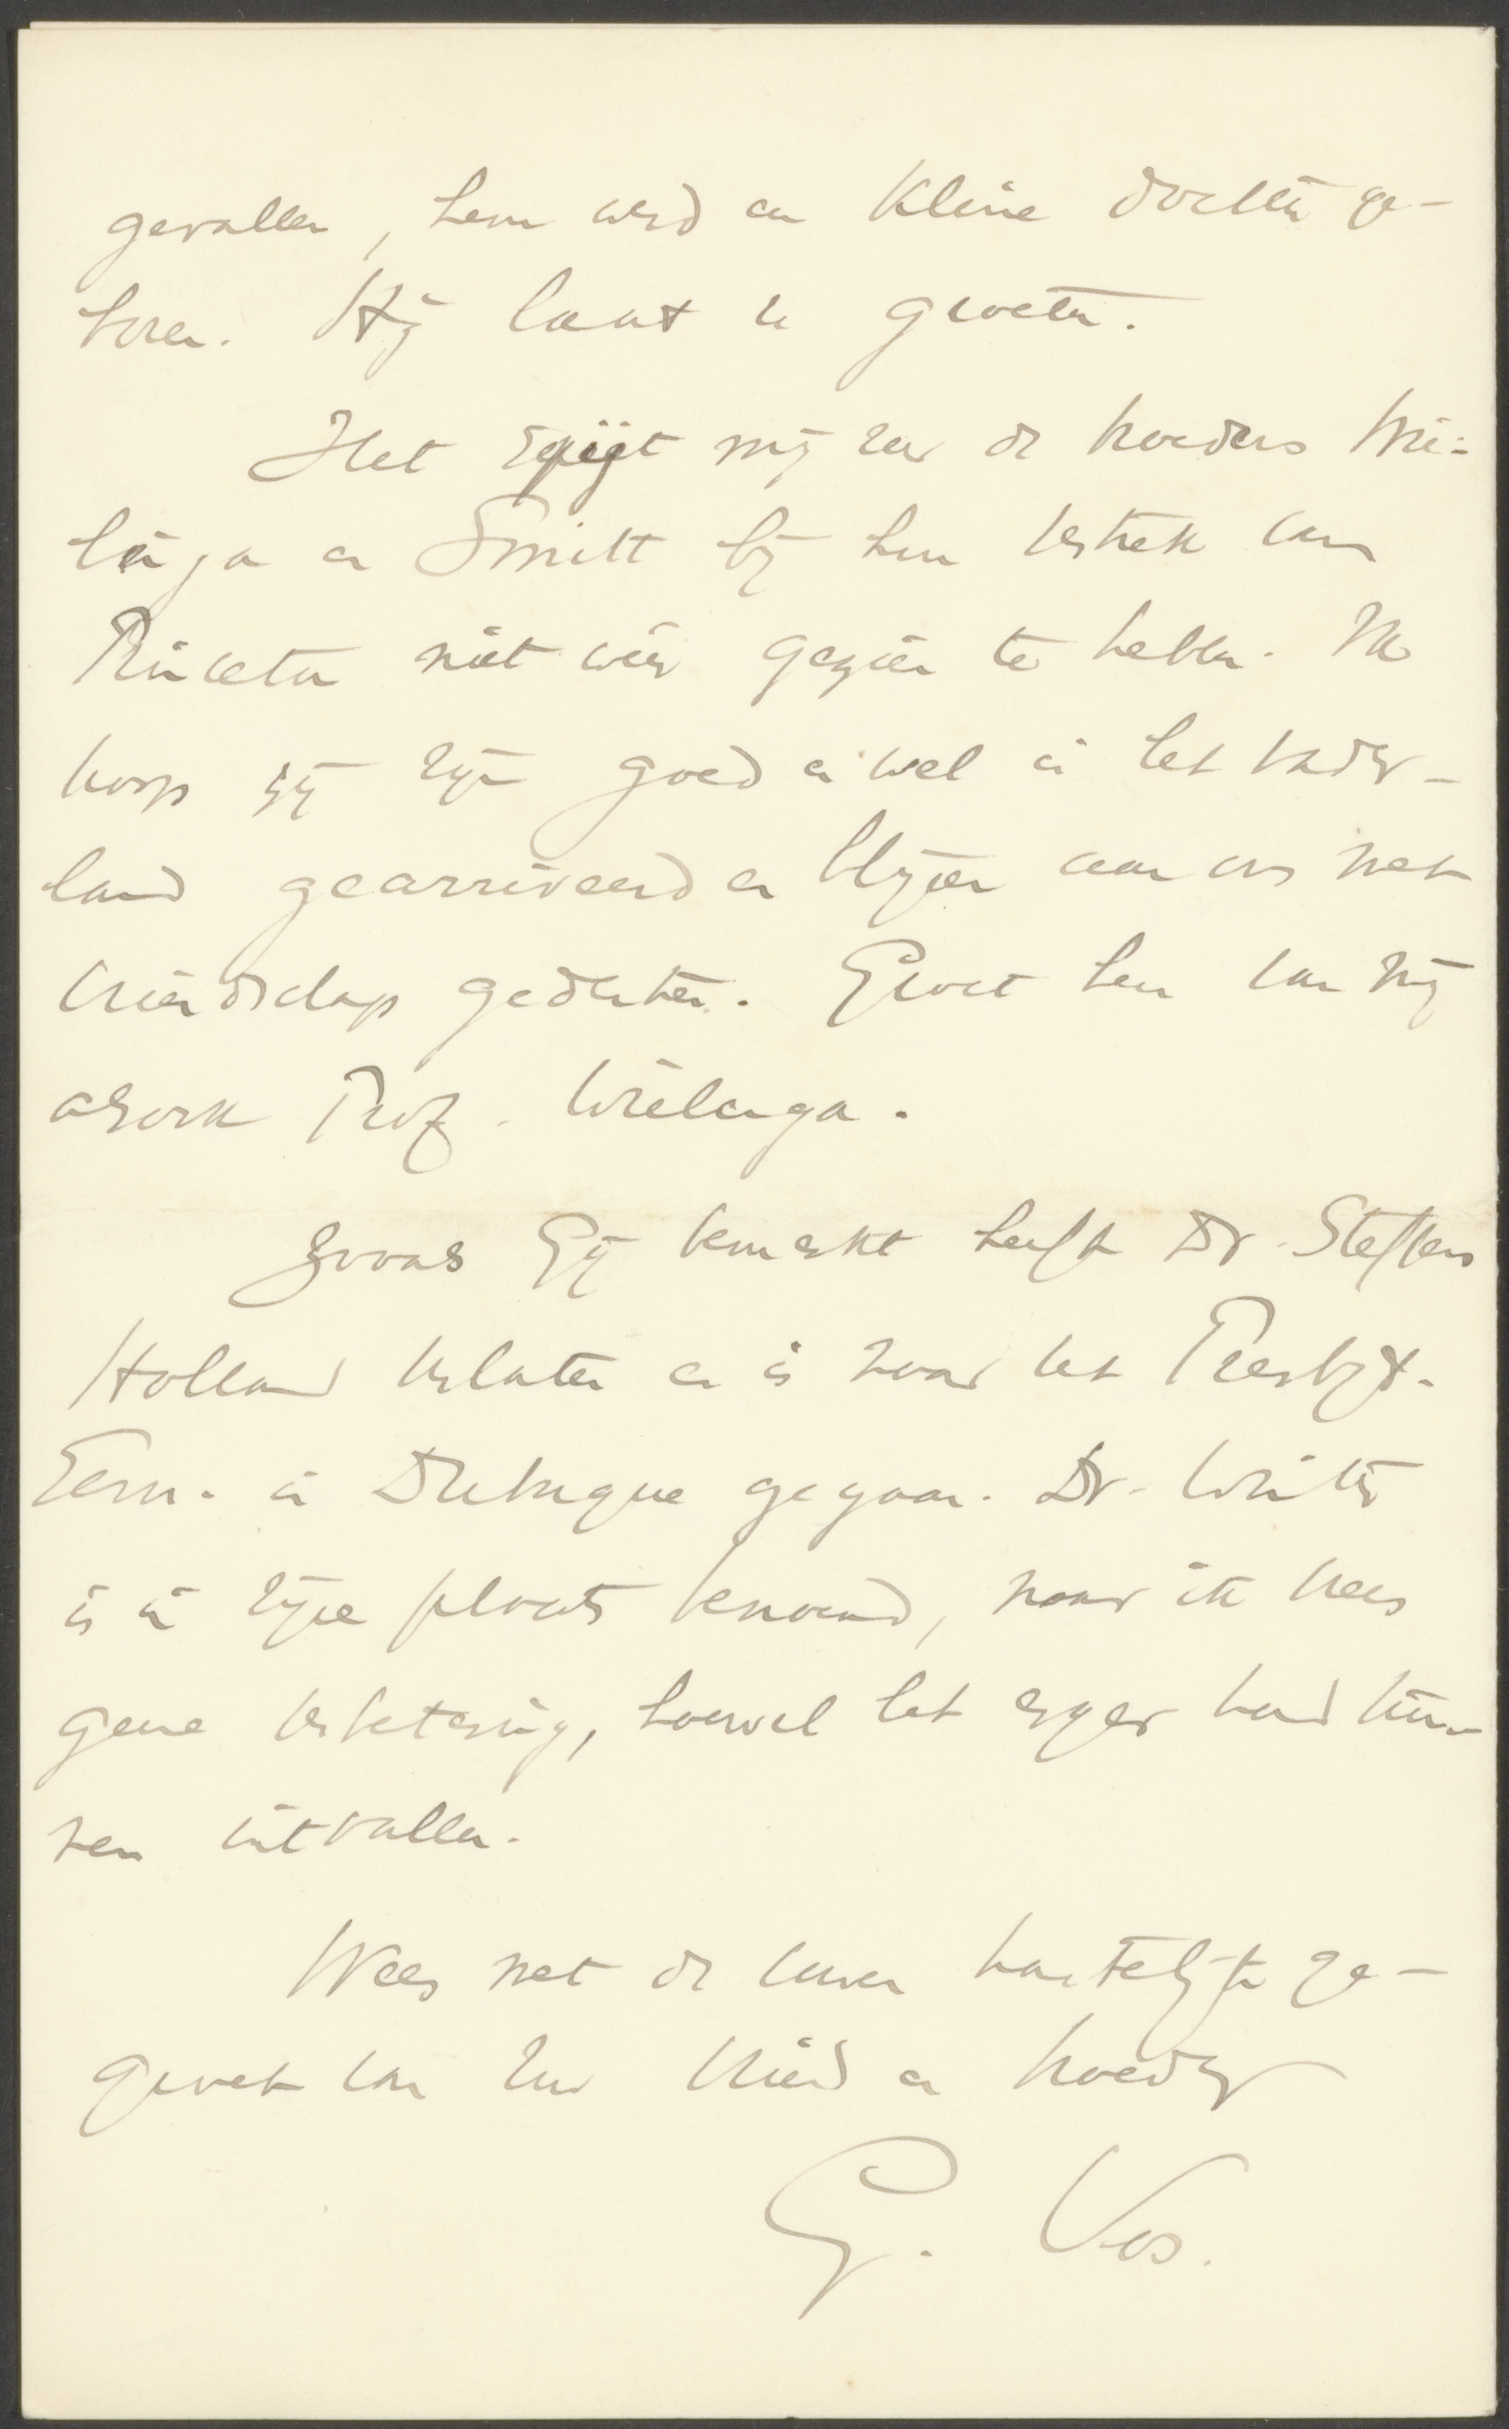 gevallen, hem werd een kleine dochter ge-
boren. Hij laat u groeten.
Het spijt mij zeer de broeders Wie-
lenga en Smitt bij hun vertrek van
Princeton niet weer gezien te hebben. Ik
hoop zij zijn goed en wel in het vader-
land gearriveerd en blijven aan ons met
vriendschap gedenken. Groet hen van mij
alsook Prof. Wielenga.
Zooals Gij bemerkt heeft Dr. Steffens
Holland verlaten en is naar het Presbyt.
Sem. in Dubuque gegaan. Dr. Winter
is in zijne plaats benoemd, maar ik vrees
geene verbetering, hoewel het erger had kun-
nen uitvallen.
Wees met de uwen hartelijk ge-
groet van uw vriend en broeder
G. Vos.